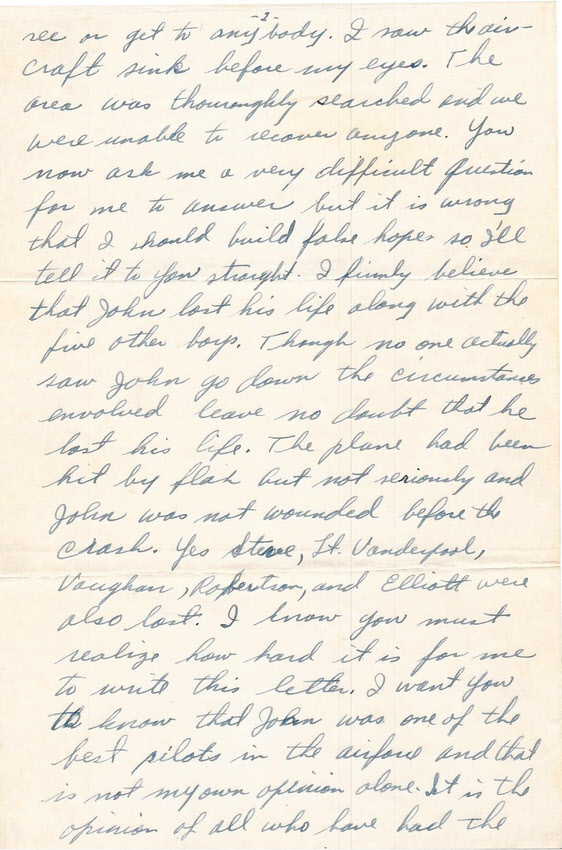 -2-
see or get to anybody. I saw the air-
craft sink before my eyes. The
area was thouroughly searched and we
were unable to recover anyone. You
now ask me a very difficult question
for me to answer but it is wrong
that I should build false hopes so, I'll
tell it to you straight. I firmly believe
that John lost his life along with the
five other boys. Though no one actually
saw John go down the circumstances
envolved leave no doubt that he
lost his life. The plane had been
hit by flak but not seriously and
John was not wounded before the
crash. Yes Steve, Lt. Vanderpool,
Vaughan, Robertson, and Elliott were
also lost. I know you must
realize how hard it is for me
to write this letter. I want you
to know that John was one of the
best pilots in the airforce and that
is not my own opinion alone. It is the
opinion of all who have had the